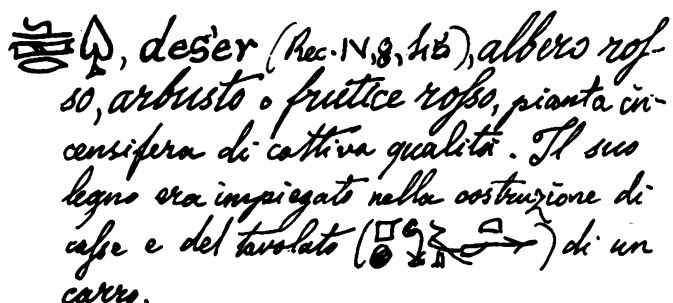 , deser (Rec. IV, 8, 46), albero ros-
so, arbusto o frutice rosso, pianta in-
censifera di cattiva qualità. Il suo
legno era impiegato nella costruzione di
casse e del tavolato ( ) di un
carro.